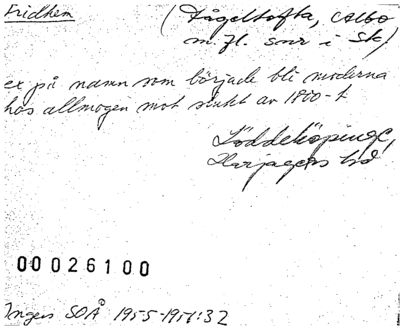 Fridhem
(Fågeltofta, Albo
m.fl. snr i Sk)
ex på namn som började bli moderna
hos allmogen mot slutet av 1800-t
Löddeköpinge,
Harjagers hd
00026100
Ingers SOÅ 1955-1956:32